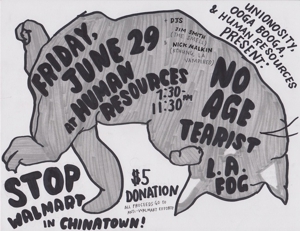 UNIONOSITY,
OOGA BOOGA,
& HUMAN RESOURCES
PRESENT:
FRIDAY,
JUNE 29
AT HUMAN
RESOURCES
7:30-
11:30 PM
DJS
JIM SMITH
(THE SMELL)
NICK MALKIN
NO
AGE
TEARIST
L.A.
FOG
STOP
WALMART
IN CHINATOWN!
$5
DONATION
ALL PROCEEDS GO TO
ANTI-WALMART EFFORTS